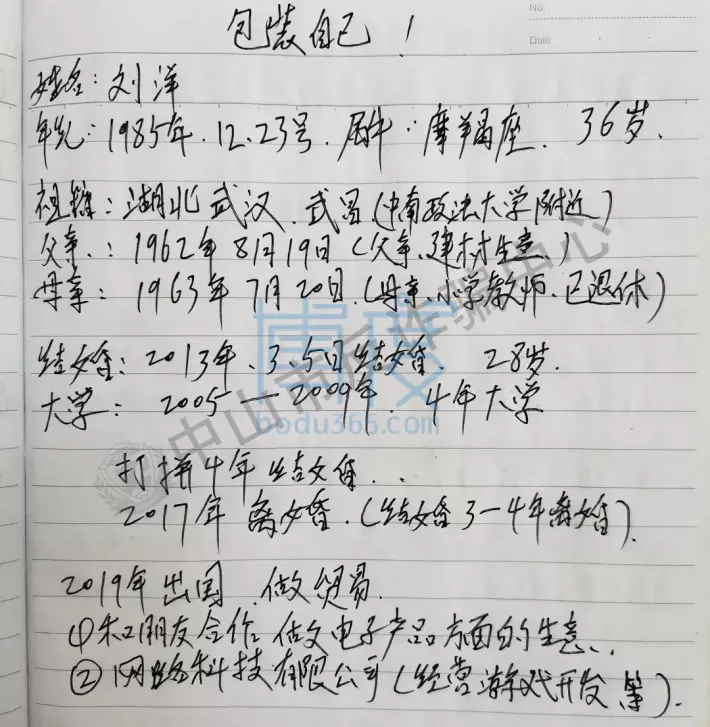 No.
Date
包装自己！
姓名：刘洋
年纪：1985年.12.23号.属牛.摩羯座. 36岁.
祖籍：湖北武汉.武昌(中南政法大学附近)
父亲.：1962年8月19日(父亲、建材生意.)
母亲：1963年7月20日.(母亲、小学教师.已退休)
结婚：2013年、3.5日结婚. 28岁.
大学：2005—2009年. 4年大学
打拼4年结婚..
2017年离婚.(结婚3-4年离婚).
2019年出国.做贸易.
①和朋友合作做电子产品方面的生意..
②网络科技有限公司(经营游戏开发等).
博度
bodu366.com
中山市反诈骗中心